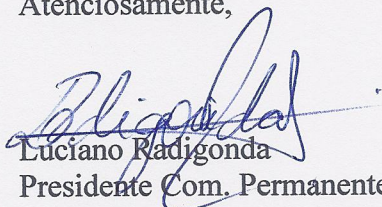 Atenciosamente,
Luciano Radigonda
Presidente Com. Permanente